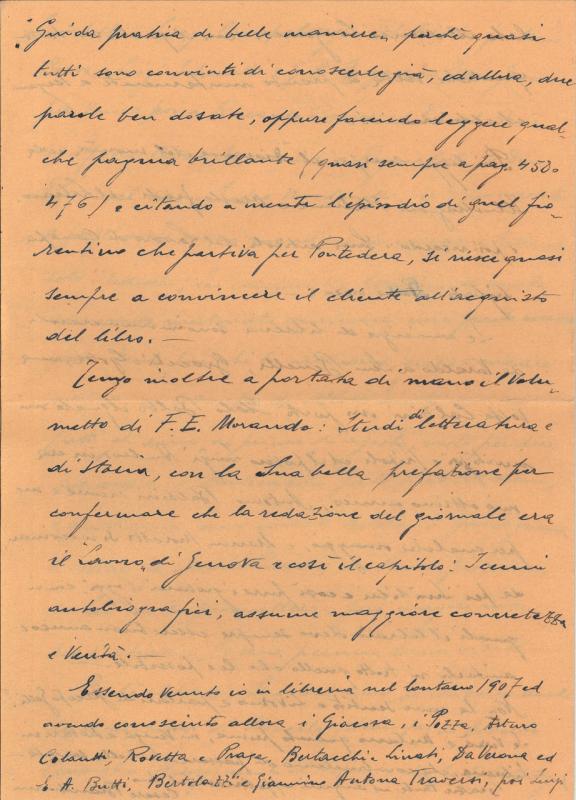 "Guida pratica di belle maniere„ perchè quasi
tutti sono convinti di conoscerle già, ed allora, due
parole ben dosate, oppure facendo leggere qual-
che pagina brillante (quasi sempre a pag. 458 o
476) e citando a mente l'episodio di quel fio-
rentino che partiva per Pontedera, si riesce quasi
sempre a convincere il cliente all'acquisto
del libro. —
Tengo inoltre a portata di mano il Volu-
metto di F. E. Morando: Studi di letteratura e
di storia, con la Sua bella prefazione per
confermare che la redazione del giornale era
il "Lavoro„ di Genova e così il capitolo: Icenni
autobiografici, assume maggiore concretezza
e verità. —
Essendo venuto io in libreria nel lontano 1907 ed
avendo conosciuto allora i Giacosa, i Pozza, Arturo
Colautti, Rovetta e Praga, Bertacchi e Linati, Da Verona ed
E. A. Butti, Bertolazzi e Giannino Antona Traversi, poi Luigi